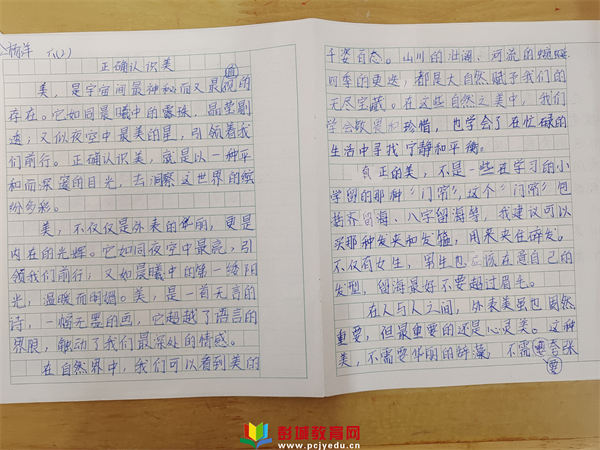 杨洋 八(2)
正确认识美
美，是宇宙间最神秘而又最直观的
存在。它如同晨曦中的露珠，晶莹剔
透；又似夜空中最美的星，引领着我
们前行。正确认识美，就是以一种平
和而深邃的目光，去洞察这世界的缤
纷多彩。
美，不仅仅是外表的华丽，更是
内在的光辉。它如同夜空中最亮，引
领我们前行；又如晨曦中的第一缕阳
光，温暖而明媚。美，是一首无言的
诗，一幅无墨的画，它超越了语言的
界限，触动了我们最深处的情感。
在自然界中，我们可以看到美的
千姿百态。山川的壮阔、河流的蜿蜒、
四季的更迭，都是大自然赋予我们的
无尽宝藏。在这些自然之美中，我们
学会敬畏和珍惜，也学会了在忙碌的
生活中寻找宁静和平衡。
真正的美，不是一些在学习的小
学留的那种“门帘”，这个“门帘”包
括齐留海、八字留海等，我建议可以
买那种发夹和发箍，用来夹住碎发。
不仅有女生，男生也应该在意自己的
发型，留海最好不要超过眉毛。
在人与人之间，外表美虽也固然
重要，但最重要的还是心灵美。这种
美，不需要华丽的辞藻，不需要夸张
彭城教育网
www.pcjyedu.cn